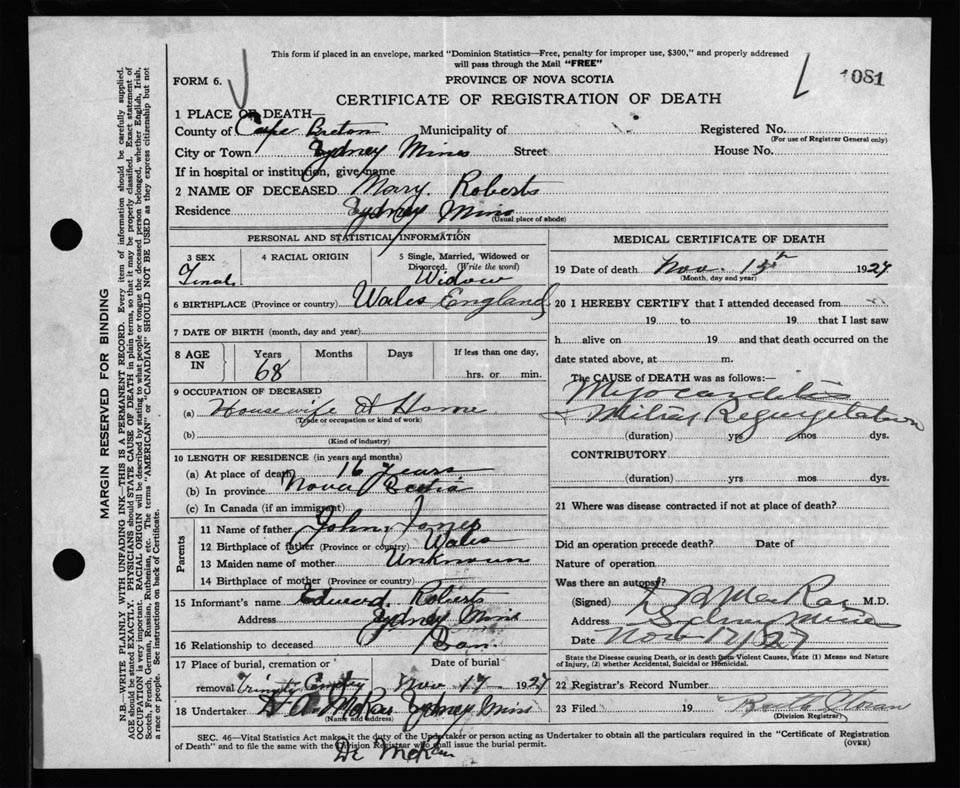 This form if placed in an envelope, marked "Dominion Statistics—Free, penalty for improper use, $300," and properly addressed
will pass through the Mail "FREE"
FORM 6.
PROVINCE OF NOVA SCOTIA
1081
CERTIFICATE OF REGISTRATION OF DEATH
1 PLACE OF DEATH—
County of Cape Breton Municipality of Registered No.
(For use of Registrar General only)
City or Town Sydney Mines Street House No.
If in hospital or institution, give name
2 NAME OF DECEASED Mary Roberts
Residence Sydney Mines
(Usual place of abode)
PERSONAL AND STATISTICAL INFORMATION
3 SEX 4 RACIAL ORIGIN 5 Single, Married, Widowed or
Divorced. (Write the word)
Widow
6 BIRTHPLACE (Province or country) Wales England
7 DATE OF BIRTH (month, day and year)
8 AGE IN Years Months Days If less than one day,
68 hrs. or min.
9 OCCUPATION OF DECEASED
(a) Housewife At Home
(Trade or occupation or kind of work)
(b)
(Kind of industry)
10 LENGTH OF RESIDENCE (in years and months)
(a) At place of death 16 years
(b) In province Nova Scotia
(c) In Canada (if an immigrant)
Parents
11 Name of father John Jones
12 Birthplace of father (Province or country) Wales
13 Maiden name of mother Unknown
14 Birthplace of mother (Province or country)
15 Informant's name Edward Roberts
Address Sydney Mines
16 Relationship to deceased Son.
17 Place of burial, cremation or Date of burial
removal Trinity Nov 17 1927
18 Undertaker Sydney Mines
(Name and address)
MEDICAL CERTIFICATE OF DEATH
19 Date of death Nov. 15th 1927
(Month, day and year)
20 I HEREBY CERTIFY that I attended deceased from
19 to 19 that I last saw
h alive on 19 and that death occurred on the
date stated above, at m.
The CAUSE of DEATH was as follows:—
Myocarditis
& Mitral Regurgitation
(duration) yrs mos dys.
CONTRIBUTORY
(duration) yrs mos dys.
21 Where was disease contracted if not at place of death?
Did an operation precede death? Date of
Nature of operation
Was there an autopsy?
(Signed) M.D.
Address Sydney Mines
Date Nov 17/27
State the Disease causing Death, or in death from Violent Causes, state (1) Means and Nature
of Injury, (2) whether Accidental, Suicidal or Homicidal.
22 Registrar's Record Number
23 Filed 19
(Division Registrar)
SEC. 46—Vital Statistics Act makes it the duty of the Undertaker or person acting as Undertaker to obtain all the particulars required in the "Certificate of Registration
of Death" and to file the same with the Division Registrar who shall issue the burial permit.
(OVER)
MARGIN RESERVED FOR BINDING
N.B.—WRITE PLAINLY WITH UNFADING INK—THIS IS A PERMANENT RECORD. Every item of information should be carefully supplied.
AGE should be stated EXACTLY. PHYSICIANS should STATE CAUSE OF DEATH in plain terms, so that it may be properly classified. Exact statement of
OCCUPATION is very important. RACIAL ORIGIN will be described by stating to what people or tongue the deceased person belonged, whether English, Irish,
Scotch, French, German, Russian, Ruthenian, etc. The terms "AMERICAN" or "CANADIAN" SHOULD NOT BE USED as they express citizenship but not
a race or people. See instructions on back of Certificate.